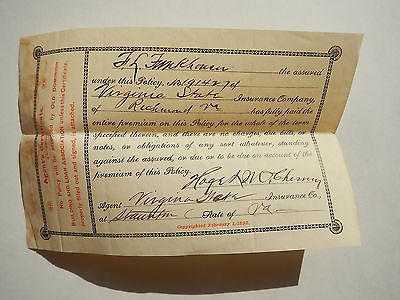 F L Funkhouser the assured
under this Policy, No 191427 of
Virginia State Insurance Company,
of Richmond Va has fully paid the
entire premium on this Policy for the whole of the term
specified therein, and there are no charges, due bills, or
notes, or obligations of any sort whatever, standing
against the assured, or due or to be due on account of the
premium of this Policy.
Hoge & McChesney
Agent Virginia State Insurance Co.,
at Staunton State of Va
Copyrighted February 1,
AGENT'S CERTIFICATE.
No Policy will be accepted by OLD DOMINION
BUILDING AND LOAN ASSOCIATION unless this Certificate,
properly filled out and signed, is attached.